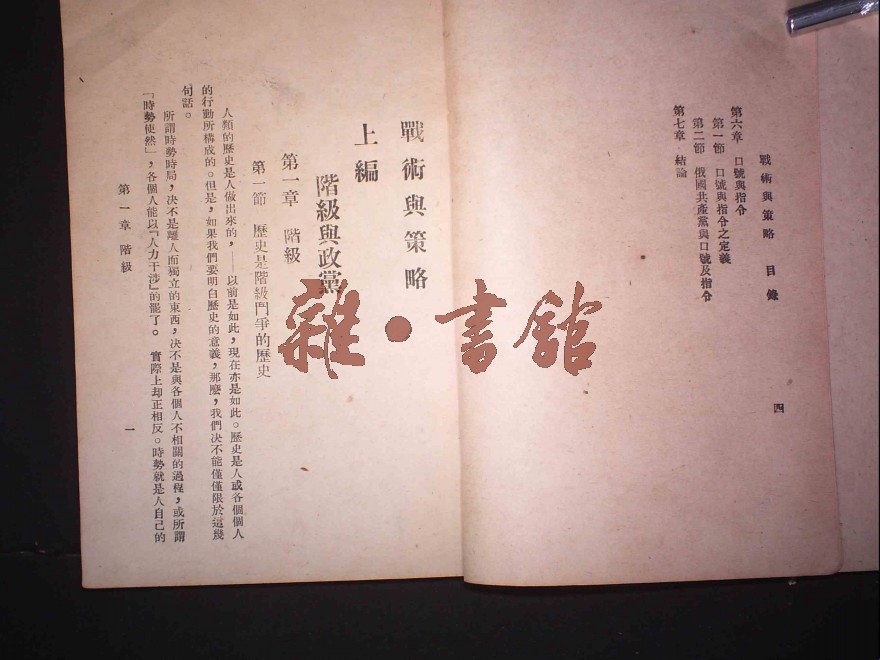 戰術與策略 目錄
第六章 口號與指令
第一節 口號與指令之定義
第二節 俄國共產黨與口號及指令
第七章 結論
四
戰術與策略
上編
階級與政黨
第一章 階級
第一節 歷史是階級鬥爭的歷史
人類的歷史是人做出來的，——以前是如此，現在亦是如此。歷史是人或各個個人
的行動所構成的。但是，如果我們要明白歷史的意義，那麼，我們決不能僅僅限於這幾
句話。
所謂時勢時局，決不是離人而獨立的東西，決不是與各個人不相關的過程，或所謂
「時勢使然」，各個人能以「人力干涉」的罷了。實際上却正相反。時勢就是人自己的
第一章 階級
一
雜·書館